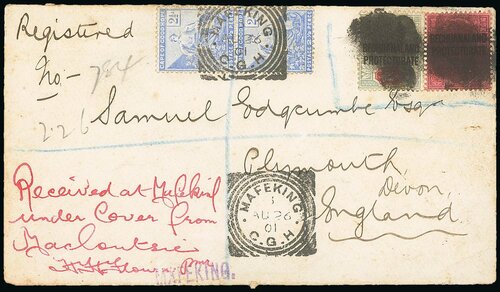 Registered
No- 784
226
2½
2½
MAFEKING
AU 26
01
C.G.H
BECHUANALAND
PROTECTORATE
BECHUANALAND
PROTECTORATE
Samuel Edgcumbe Esqr
Plymouth
Devon
England
MAFEKING
AU 26
01
C.G.H
Received at
under Cover from
MAFEKING.